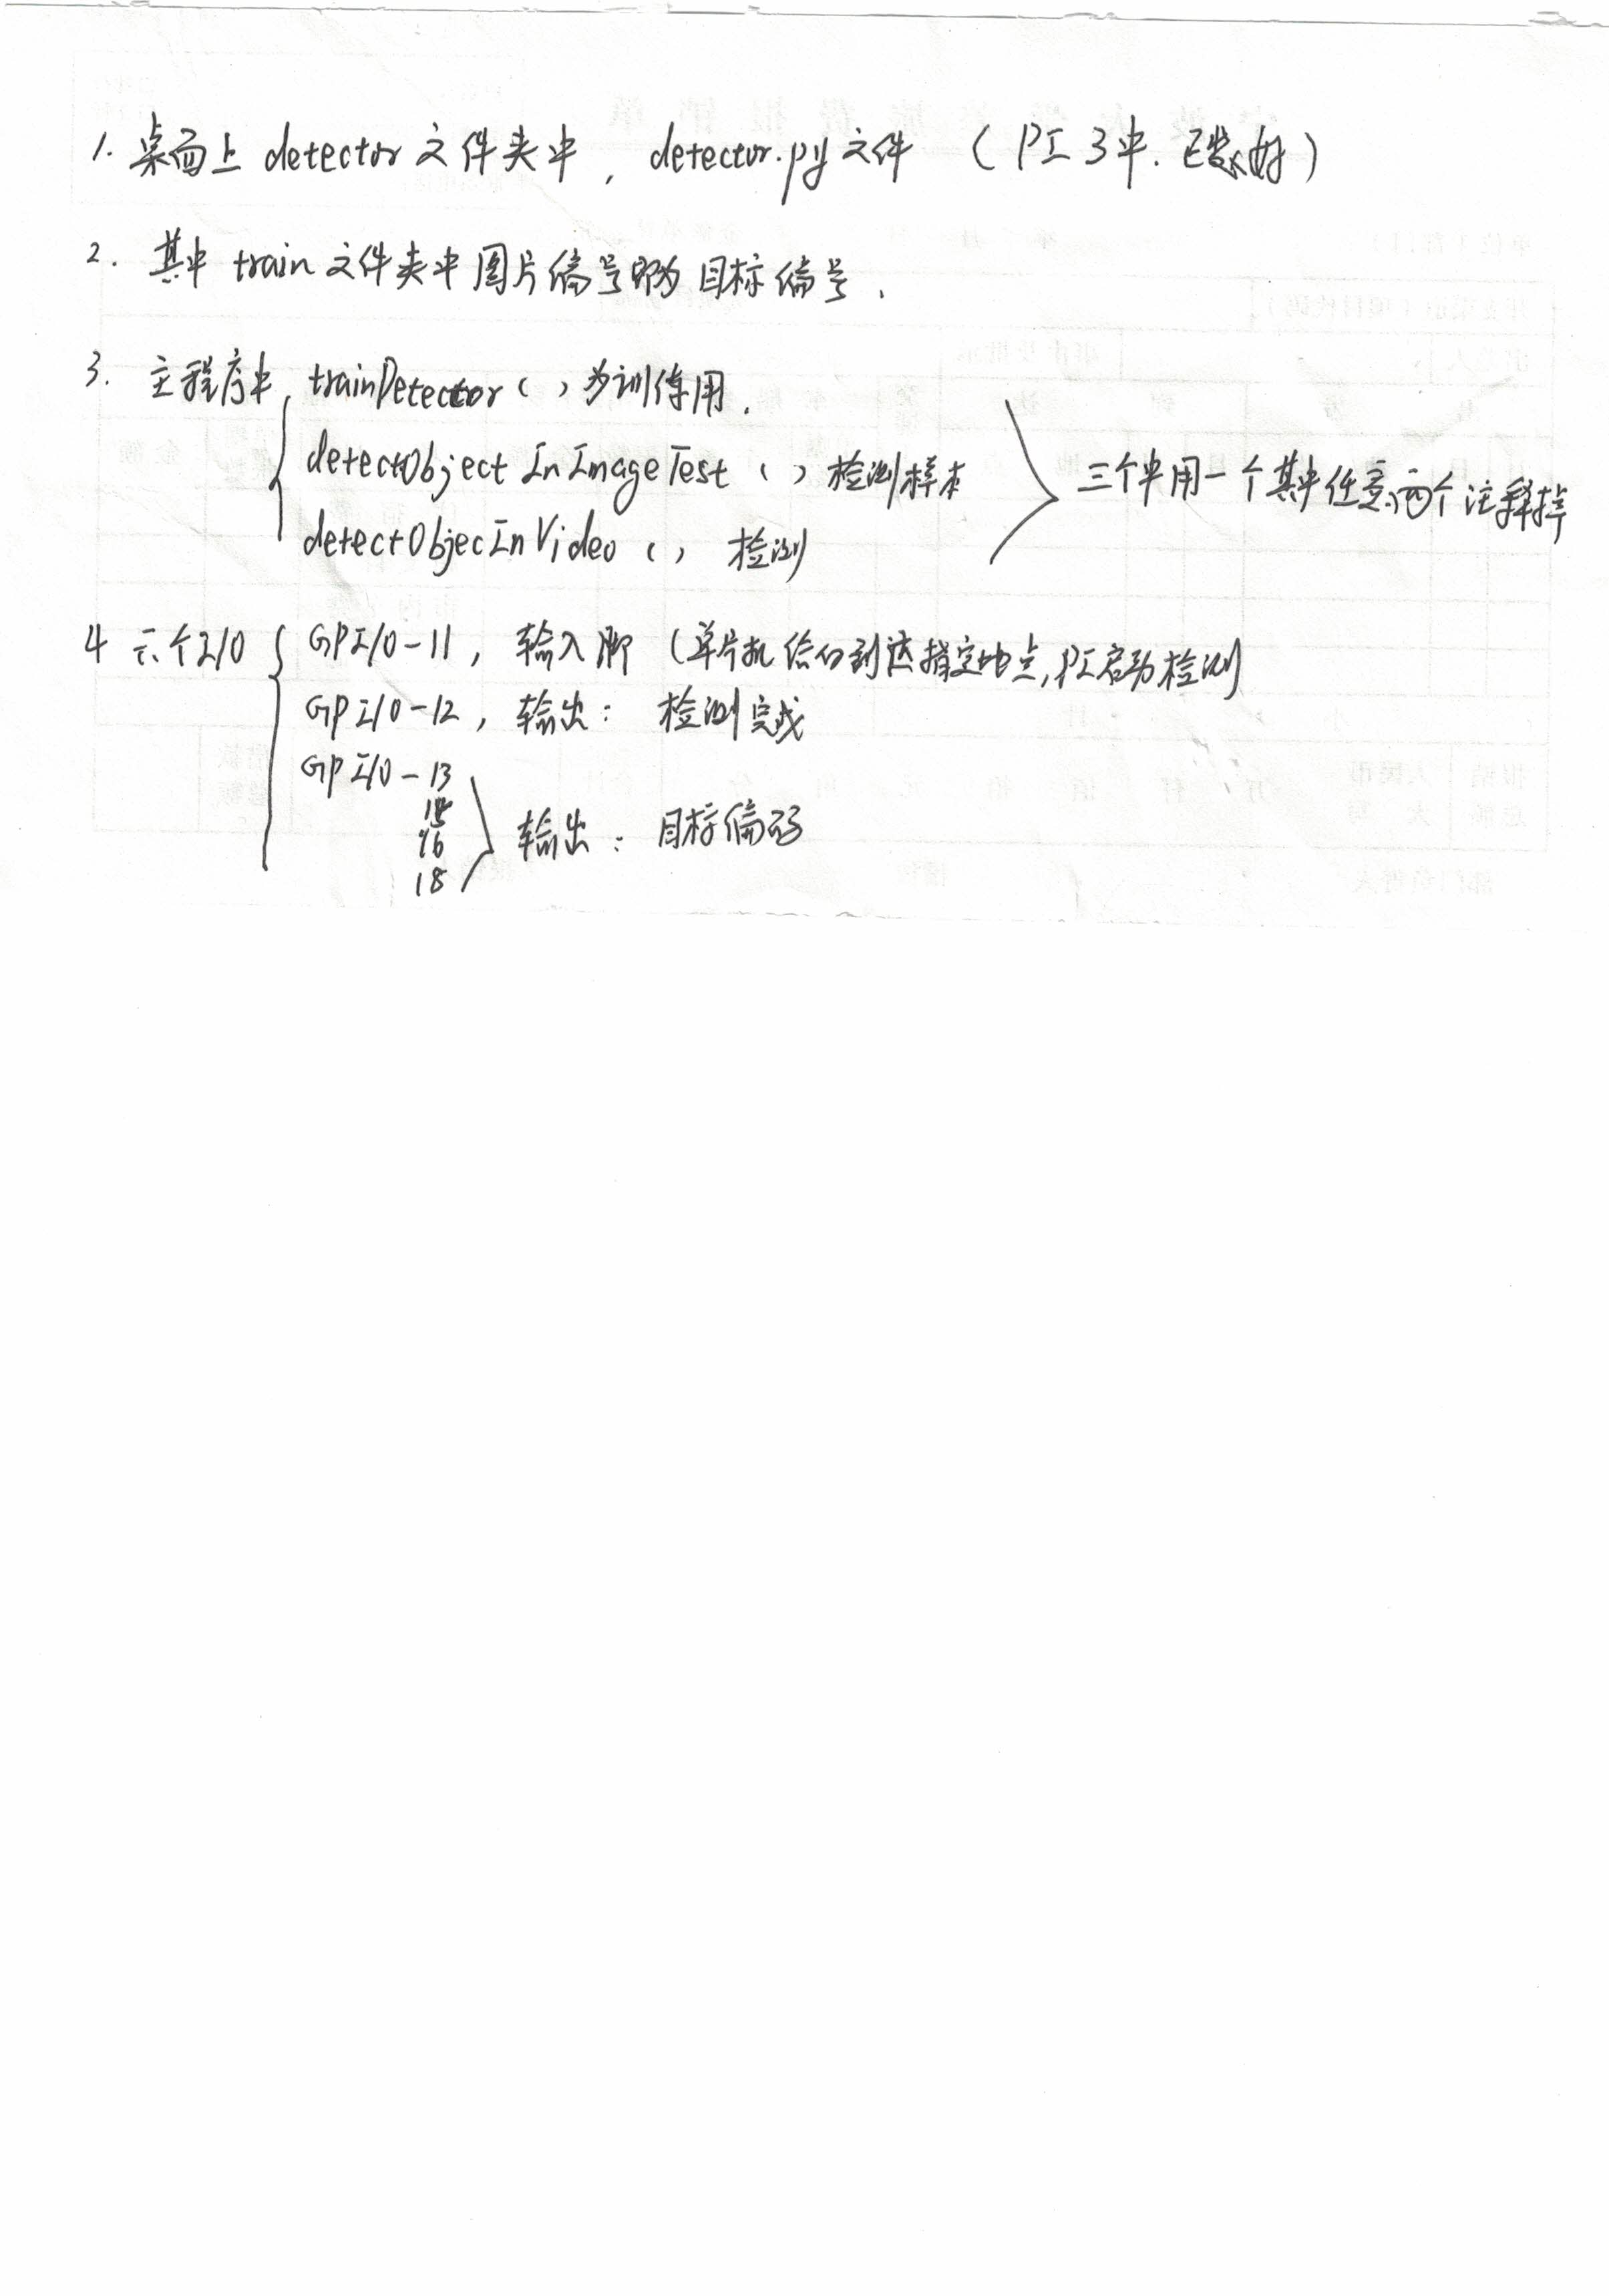 1. 桌面上 detector 文件夹中, detector.py 文件 (PI 3中. 已装好)
2. 其中 train 文件夹中图片编号即为目标编号.
3. 主程序中, trainDetector ( ) 为训练用.
detectObject In Image Test ( ) 检测样本
detectObjecInVideo ( ) 检测
三个中用一个其中任意两个注释掉
4 六个I/O
GPI/O-11, 输入脚 (单片机给 到达指定地点, PI启动检测
GPI/O-12, 输出: 检测完成
GPI/O-13
15
16
18
输出: 目标编码